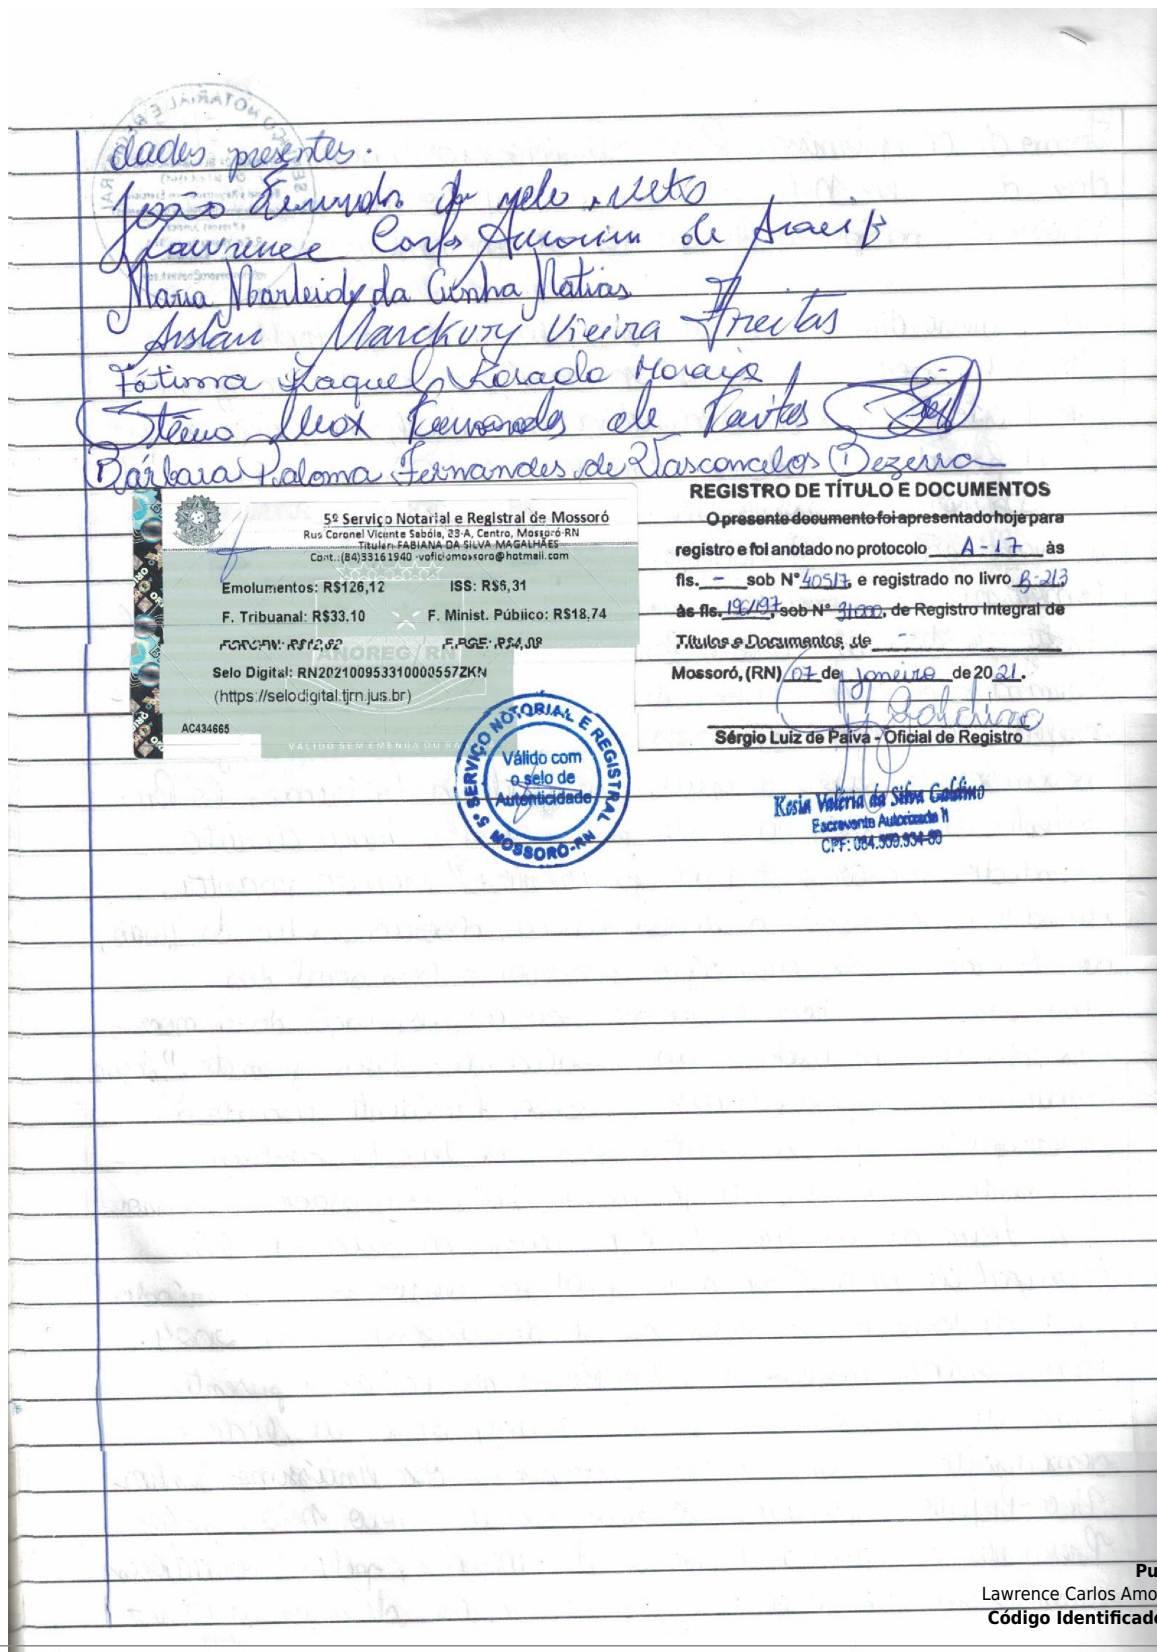 dades presentes.
João Fernandes de melo Neto
Lawrence Carlos Amorim de Araújo
Maria Marleide da Cunha Matias
Arslan Marckuty Vieira Freitas
Fátima Raquel Rosado Morais
Stênio Max Fernandes de Freitas
Bárbara Paloma Fernandes de Vasconcelos Bezerra
5º Serviço Notarial e Registral de Mossoró
Rua Coronel Vicente Sabóia, 23-A, Centro, Mossoró-RN
Titular: FABIANA DA SILVA MAGALHÃES
Cont.:(84)33161940 -voficiomossoro@hotmail.com
Emolumentos: R$126,12 ISS: R$6,31
F. Tribuanal: R$33.10 F. Minist. Público: R$18,74
FCRCPN: R$12,62 F.PGE: R$4,08
ANOREG/RN
Selo Digital: RN202100953310000557ZKN
(https://selodigital.tjrn.jus.br)
AC434665
VÁLIDO SEM EMENDA OU
REGISTRO DE TÍTULO E DOCUMENTOS
O presente documento foi apresentado hoje para
registro e foi anotado no protocolo A-17 às
fls. - sob N° 40517, e registrado no livro B-213
às fls. 196/197, sob N° 31000, de Registro Integral de
Títulos e Documentos, de -
Mossoró, (RN) 07 de janeiro de 2021.
Sérgio Luiz de Paiva - Oficial de Registro
5º SERVIÇO NOTORIAL E REGISTRAL
Válido com
o selo de
Autenticidade
MOSSORÓ-RN
Kesia Valéria da Silva Galdino
Escrevente Autorizada II
CPF: 084.559.934-80
Pu
Lawrence Carlos Amo
Código Identificado